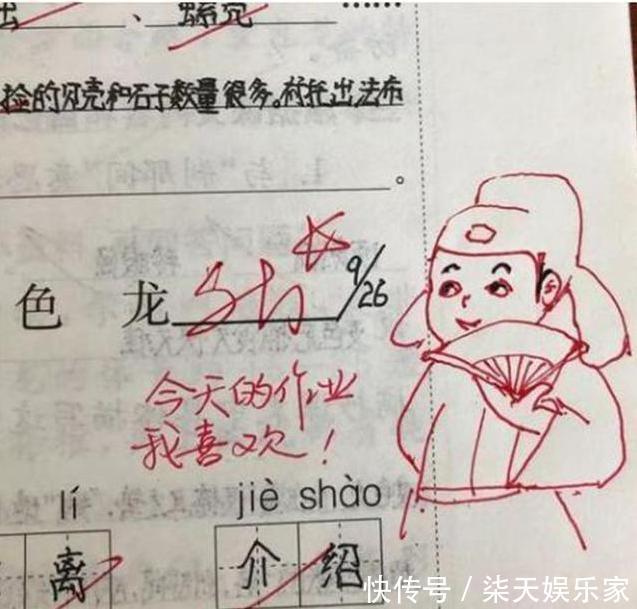 捡的贝壳和石子数量很多。衬托出法布
。
色 龙 9/26
今天的作业
我喜欢！
lí jiè shào
离 介 绍
快传号/柒天娱乐家